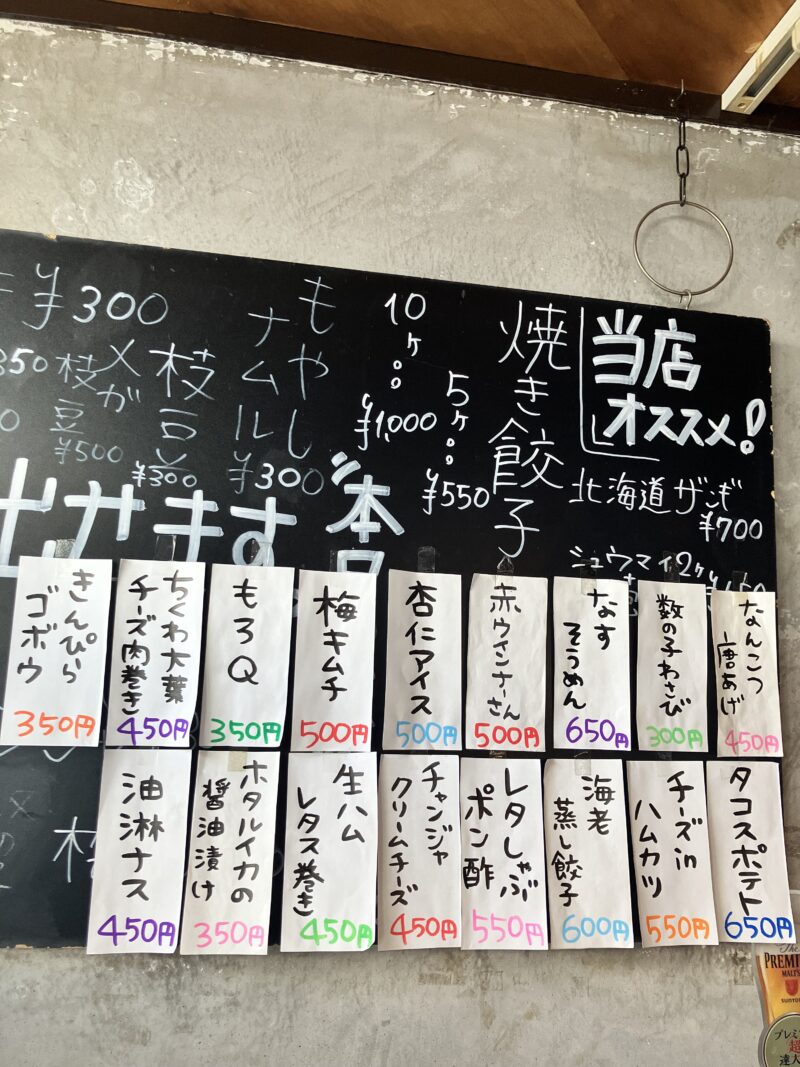 当店
オススメ!
北海道ザンギ
¥700
シュウマイ2ヶ
焼き餃子
5ヶ
¥550
10ヶ
¥1,000
もやし
ナムル
¥300
枝豆
¥300
メガ
枝豆
¥500
¥300
なんこつ
唐あげ
450円
数の子わさび
300円
なす
そうめん
650円
赤ウインナーさん
500円
杏仁アイス
500円
梅キムチ
500円
もろQ
350円
ちくわ大葉
チーズ肉巻き
450円
きんぴら
ゴボウ
350円
タコスポテト
650円
チーズin
ハムカツ
550円
海老
蒸し餃子
600円
レタしゃぶ
ポン酢
550円
チャンジャ
クリームチーズ
450円
生ハム
レタス巻き
450円
ホタルイカの
醤油漬け
350円
油淋ナス
450円
The
PREMIUM
MALT'S
SUNTORY
超
達人